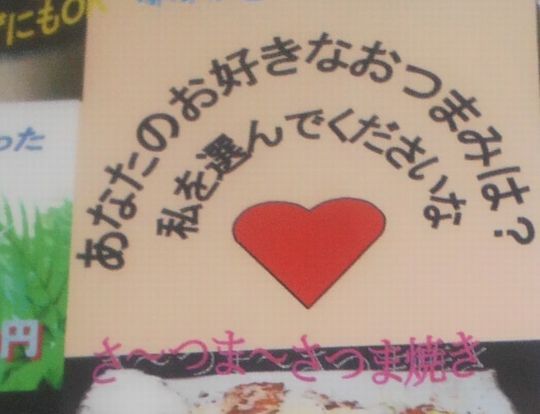 にもOK
あなたのお好きなおつまみは？
私を選んでくださいな
った
円
さ〜つま〜さつま焼き